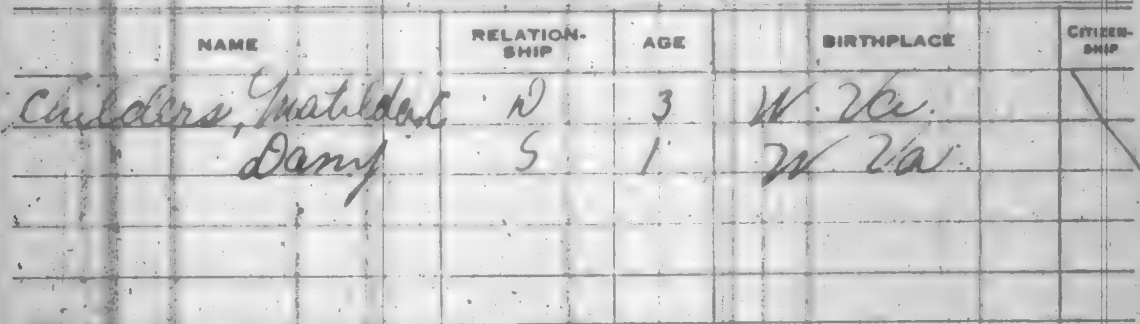 NAME RELATION-SHIP AGE BIRTHPLACE CITIZEN-SHIP
Childers, Matilda C D 3 W. Va.
Dany S 1 W Va.